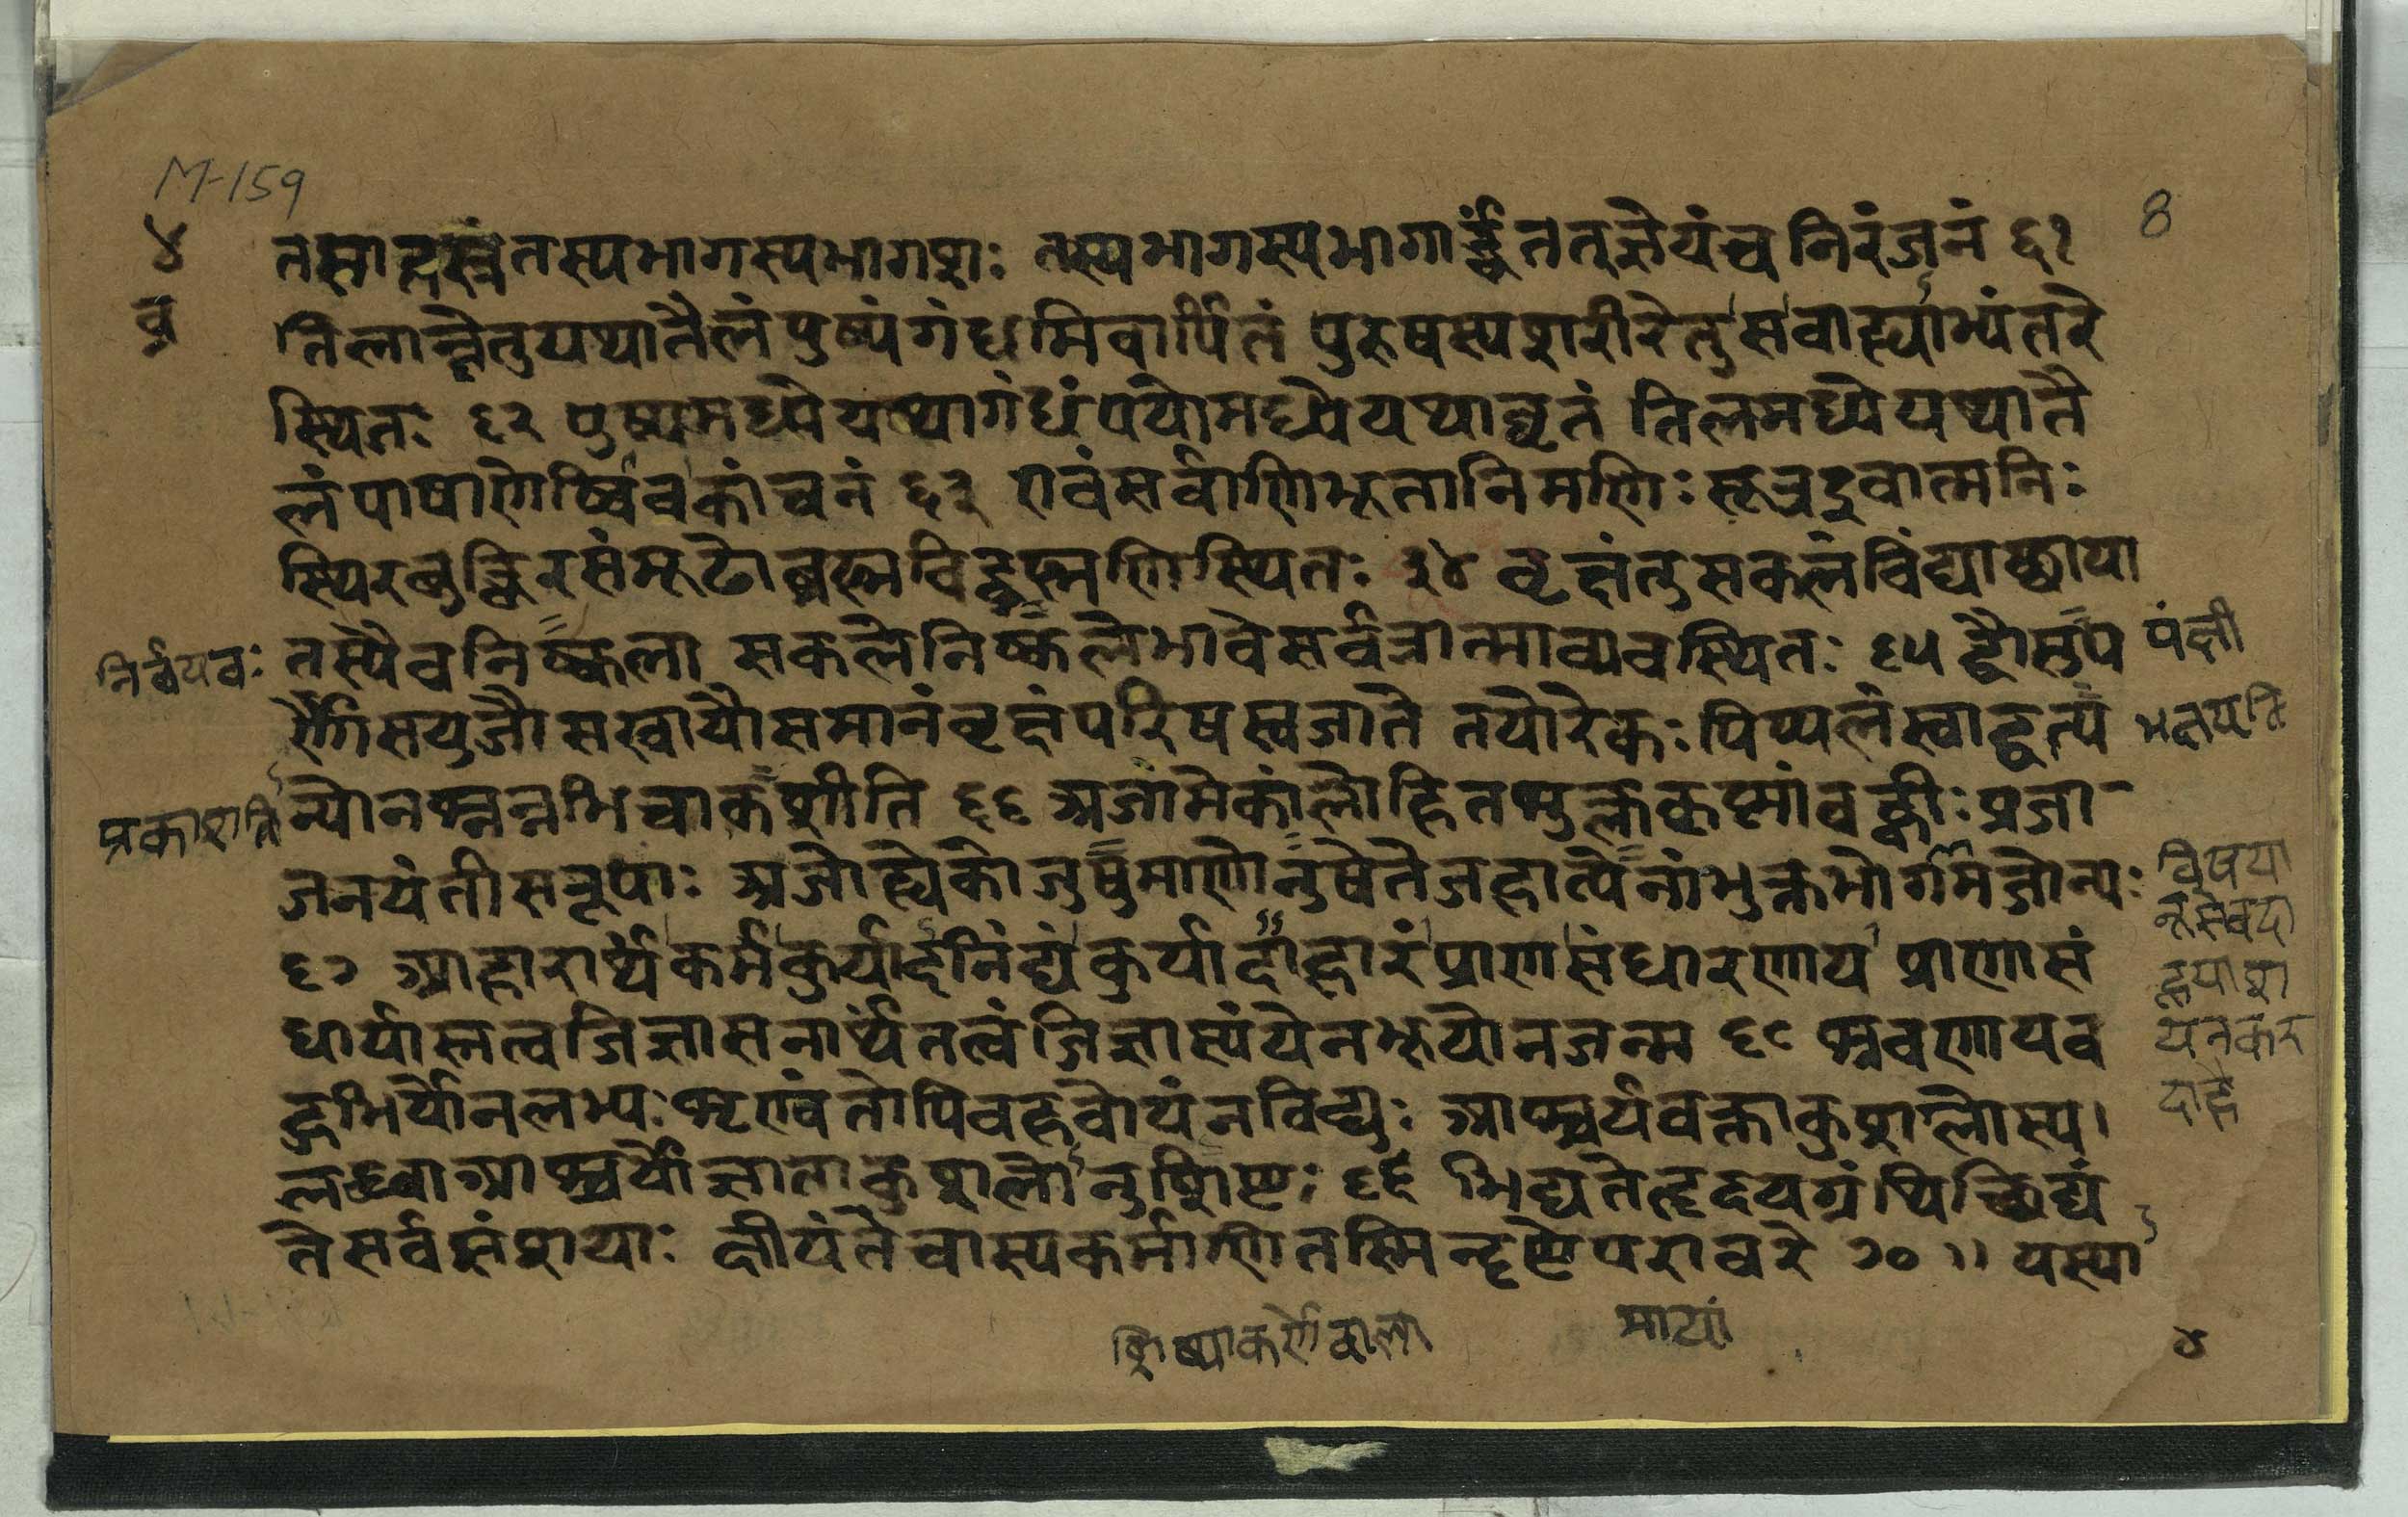 M-159
४
8
व्र
तस्मात्सूक्ष्मंतस्यभागस्यभागशः तस्यभागस्यभागार्द्धंतत्तुज्ञेयंचनिरंजनं ६१
तिलान्नेतुयथातैलंपुष्पंगंधमिवार्पितं पुरुषस्यशरीरेतुसवाह्याभ्यंतरे
स्थितः ६२ पुष्पमध्येयथागंधंपयोमध्येयथाघृतं तिलमध्येयथातै
लंपाषाणेष्विवकांचनं ६३ एवंसर्वाणिभूतानिमणिःसूत्रइवात्मनिः
स्थिरबुद्धिरसंमूढोब्रह्मविद्ब्रह्मणिस्थितः ३४ वृक्षंतुसकलंविंद्याछाया
तस्यैवनिष्कला सकलेनिष्कलेभावेसर्वत्रात्माव्यवस्थितः ६५ द्वौसुप
निर्वयवः
पंक्षी
र्णौसयुजौसखायौसमानंवृक्षंपरिषस्वजाते तयोरेकःपिप्पलंस्वाद्वत्त्यं
भक्षयति
न्योनश्नन्नभिचाकशीति ६६ अजामेकांलोहितशुक्लकृष्मांवह्वीःप्रजा
प्रकाशति
जनयंतीसरूपाः अजोह्येकोजुषुमाणोनुषेतेजहात्येनांभुक्तभोगमजोन्यः
विषया
६७ आहारार्थ्यकर्मकुर्यादनिंद्यंकुर्यादाहारंप्राणसंधारणाय प्राणासं
धार्यास्तत्वजिज्ञासनार्थ्यतत्वंजिज्ञास्यंयेनभूयोनजन्म ६८ श्रवणायव
यतकर
हुभिर्योनलभ्यःशृण्वंतोपिवहवोयंनविद्युः आश्चर्यवक्ताकुशलोस्य।
लब्ध्वाआश्चर्योज्ञाताकुशलोनुशिष्टः ६९ भिद्यतेहृदयग्रंथिच्छिद्यं
तेसर्वसंशयाः क्षीयंतेचास्यकर्माणितस्मिन्दृष्टेपरावरे ७० ॥ यस्या
माया
४